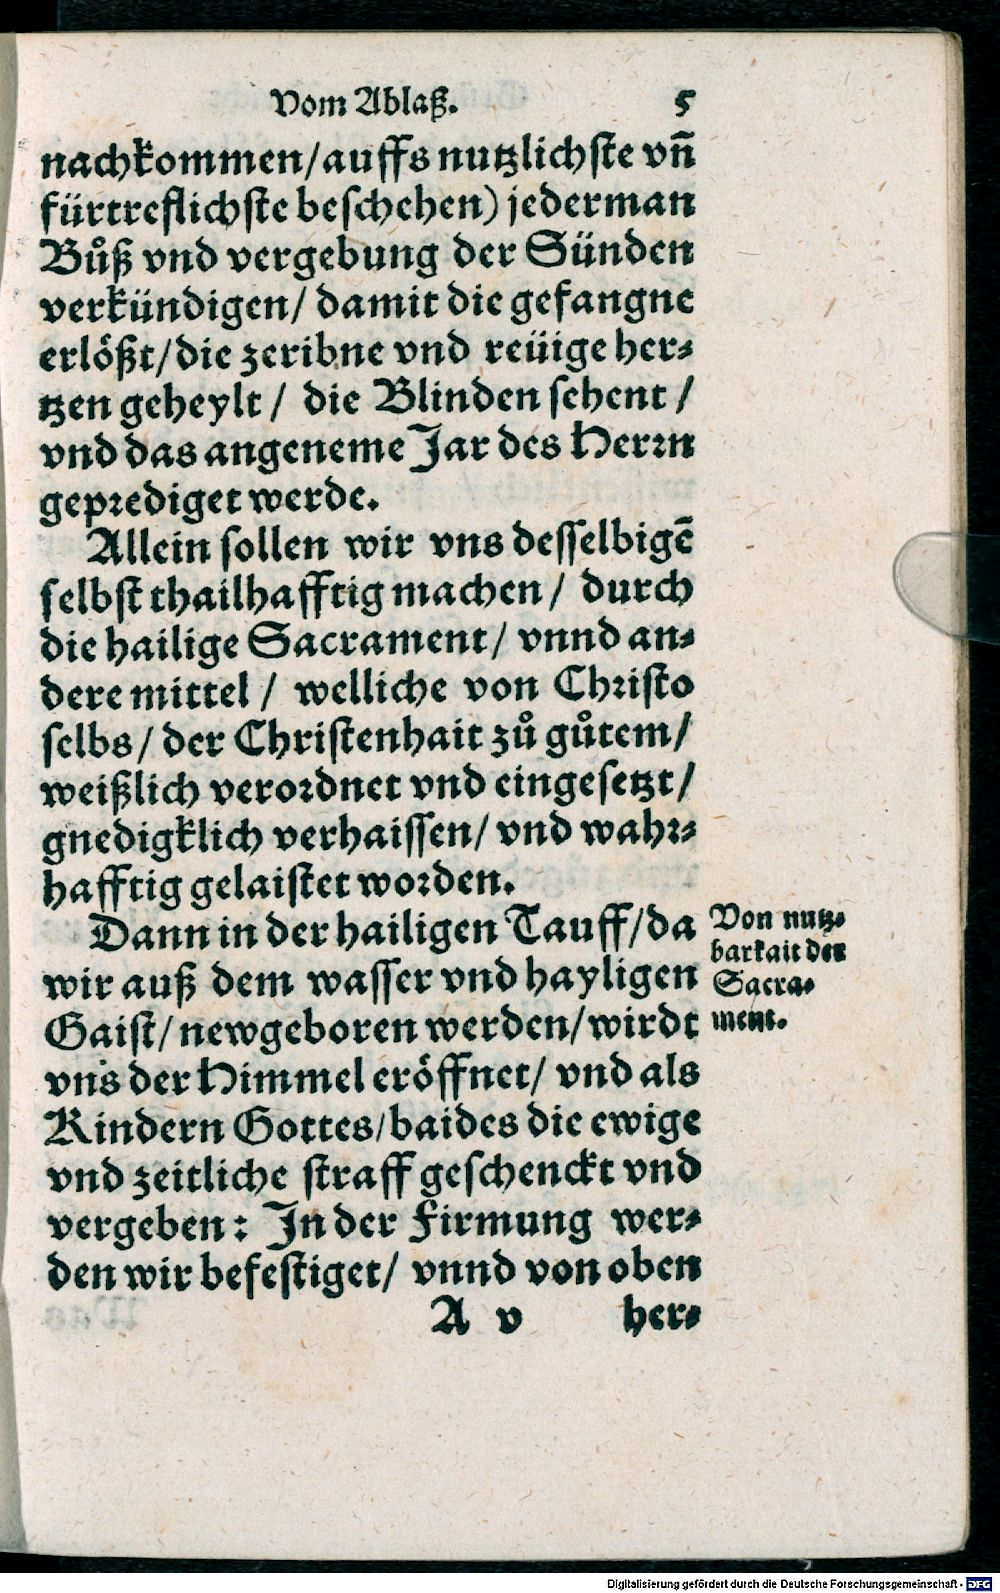 Vom Ablaß. 5
nachkommen/auffs nutzlichste vn̄
fürtreflichste beschehen) jederman
Bůß vnd vergebung der Sünden
verkündigen/ damit die gefangne
erlößt/die zeribne vnd reüige her⸗
tzen geheylt/ die Blinden sehent/
vnd das angeneme Jar des Herrn
geprediget werde.
Allein sollen wir vns desselbigē
selbst thailhafftig machen/ durch
die hailige Sacrament/ vnnd an⸗
dere mittel/ welliche von Christo
selbs/ der Christenhait zů gůtem/
weißlich verordnet vnd eingesetzt/
gnedigklich verhaissen/ vnd wahr⸗
hafftig gelaistet worden.
Dann in der hailigen Tauff/da
wir auß dem wasser vnd hayligen
Gaist/ newgeboren werden/wirdt
vns der Himmel eröffnet/ vnd als
Kindern Gottes/baides die ewige
vnd zeitliche straff geschenckt vnd
vergeben: In der Firmung wer⸗
den wir befestiget/ vnnd von oben
A v her⸗
Von nutz⸗
barkait der
Sacra⸗
ment.
Digitalisierung gefördert durch die Deutsche Forschungsgemeinschaft - DFG